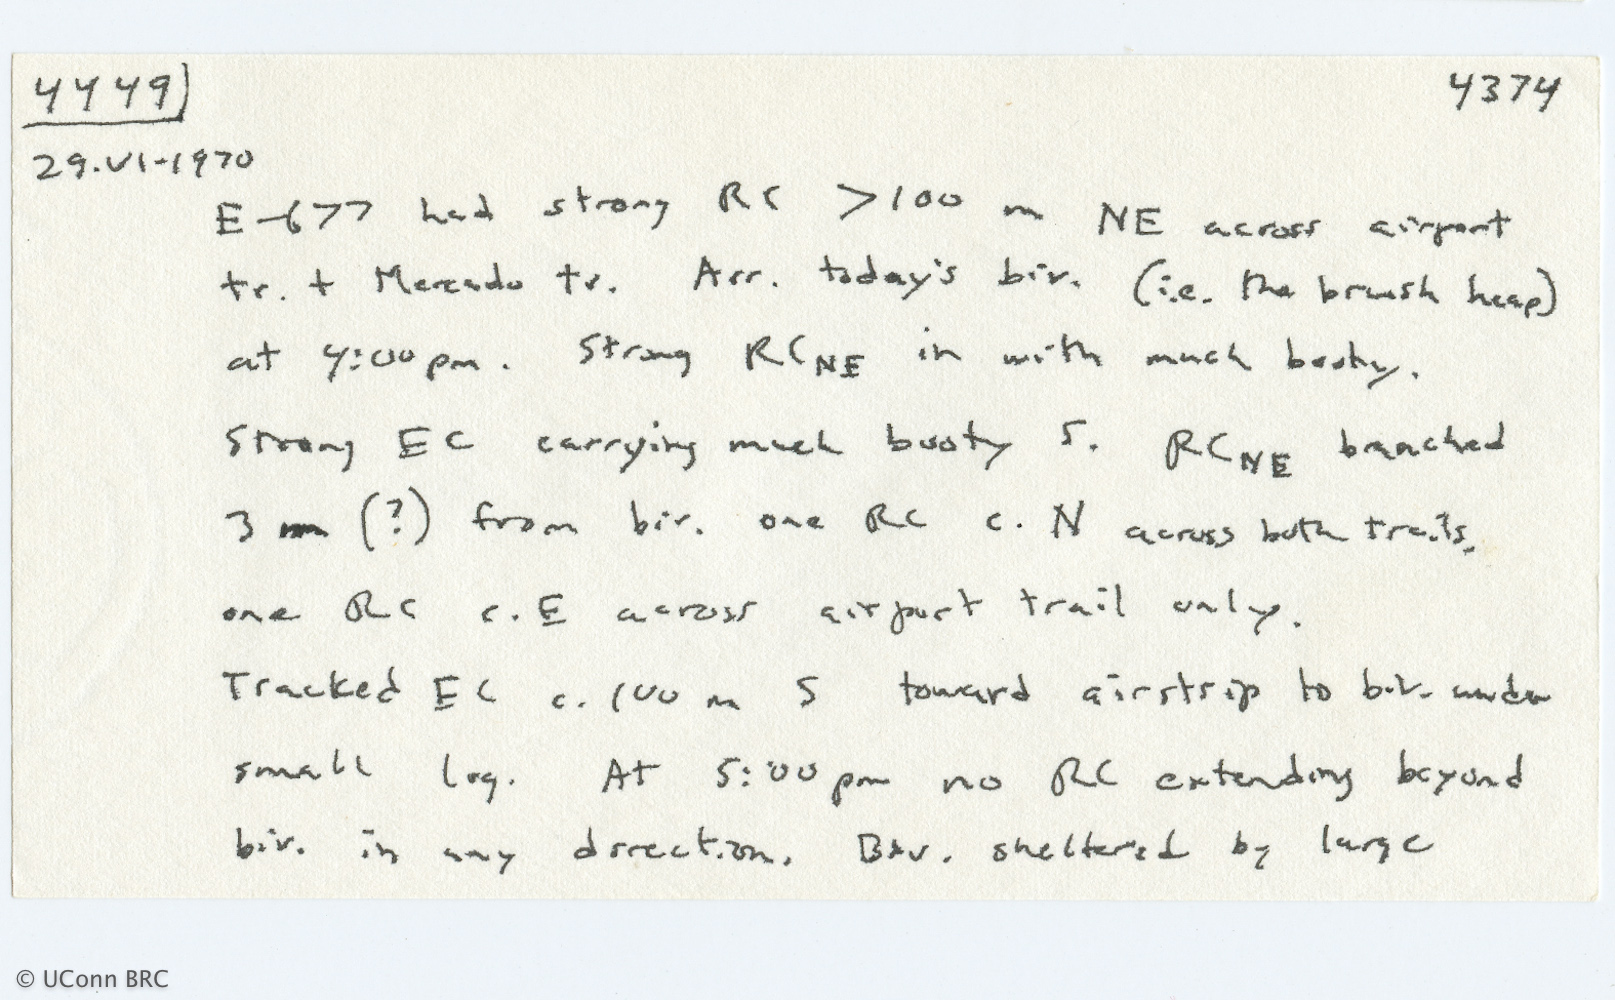 4449 4374
29.VI-1970
E-677 had strong RC >100 m NE across airport
tr. + Mercado tr. Arr. today's biv. (i.e. the brush heap)
at 4:00 pm. Strong RC NE in with much booty.
Strong EC carrying much booty S. RC NE branched
3 m (?) from biv. one RC c. N across both trails,
one RC c. E across airport trail only.
Tracked EC c. 100 m S toward airstrip to biv. under
small log. At 5:00 pm no RC extending beyond
biv. in any direction. Biv. sheltered by large
© UConn BRC